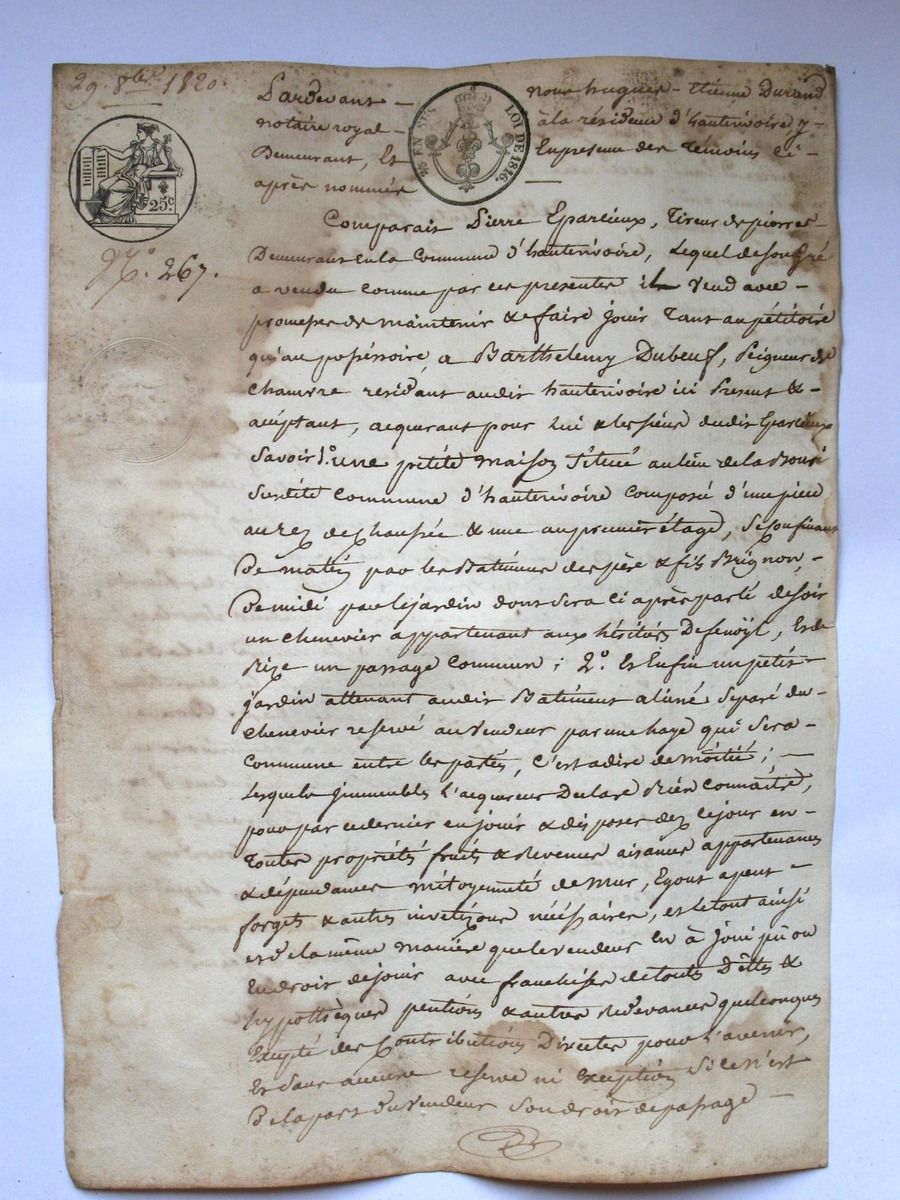 29. 8bre 1820.
25c
EN SUS LOI DE 1816.
No. 267.
Pardevant - nous hugues - Etienne Durand
notaire royal - à la résidence d'hauterivoire, y-
Demeurant, Et En presence des temoins ci -
après nommés
Comparait Pierre Eparvieux, Tireur de pierres
Demeurant en la Commune d'hauterivoire, Lequel de son gré
a vendu comme par ces presentes il Vend avec -
promesses de maintenir & faire jouir Tant au pétitoire
qu'au possessoire, a Barthelemy Dubeuf, Peigneur de
chanvre residant audit hauterivoire ici Present & -
acceptant, acquerant pour Lui & les siens dudit Eparvieux
Savoir 1o. une petite maison Située au lieu de la
Susdite Commune d'hauterivoire composé d'une piece
au rez de chaussée & une au premier étage, Se confinant
De matin par les Batimens des père & fils Brignon, -
De midi par le jardin dont sera ci après parlé de soir
un chenevier appartenant aux héritiers Defenoÿl, Et de
Bize un passage Commun; 2o. Et Enfin un petit -
jardin attenant audit Batiment aliéné Separé du -
chenevier reservé au Vendeur par une haye qui Sera -
Commune entre les parties, C'est a dire de moitié; -
Lesquels immeubles L'acquereur Declare Bien connaitre,
pour par ce dernier en jouir & disposer dez ce jour en -
Toutes propriétés fruits & Revenus aisances appartenances
& dépendances mitoyenneté de mur, Egout
forgets & autres nécéssaires, et le tout ainsi
et de la même manière que le vendeur En à Joui pû ou
En droit de jouir avec franchises de toutes Dettes &
hÿpothèques pentions & autres Redevances quelconques
Excepté des Contributions Directes pour L'avenir,
Et Sans aucune reserve ni Exception Si ce n'est
De la part du Vendeur Son droit de passage -